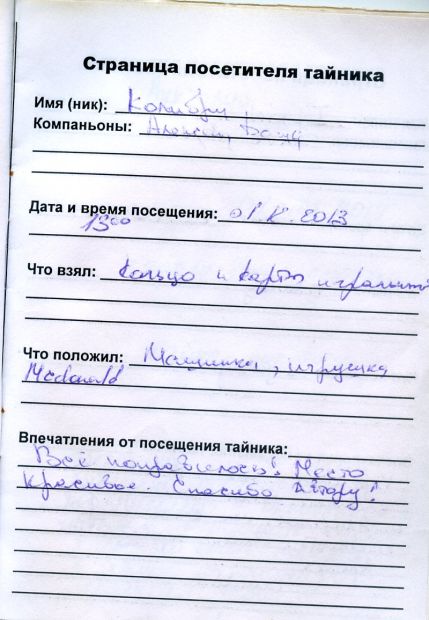 Страница посетителя тайника
Имя (ник): Колибри
Компаньоны: Алексей,
Дата и время посещения: 01.12.2013
13 00
Что взял: Кольцо и карты игральные
Что положил: Машинка, игрушка
Mcdonald
Впечатления от посещения тайника:
Всё понравилось! Место
красивое. Спасибо Автору!